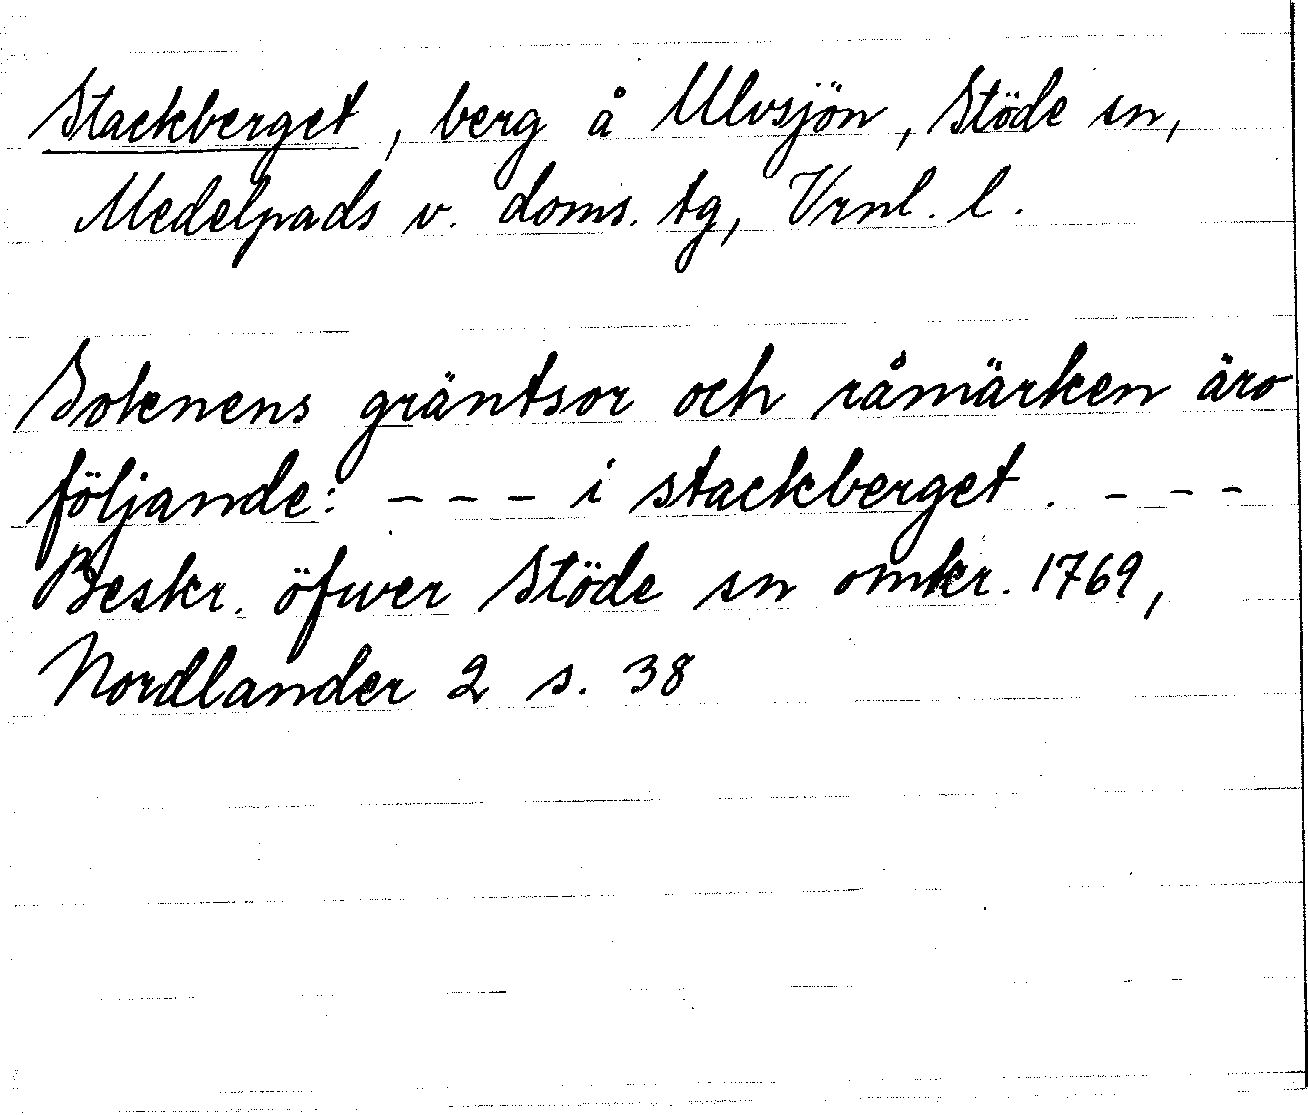 Stackberget, berg å Ulvsjön, Stöde sn,
Medelpads v. doms. tg, Vrnl. l.
Soknens gräntsor och råmärken äro
följande: - - - i stackberget. - - -
Beskr. öfwer Stöde sn omkr. 1769,
Nordlander 2 s. 38